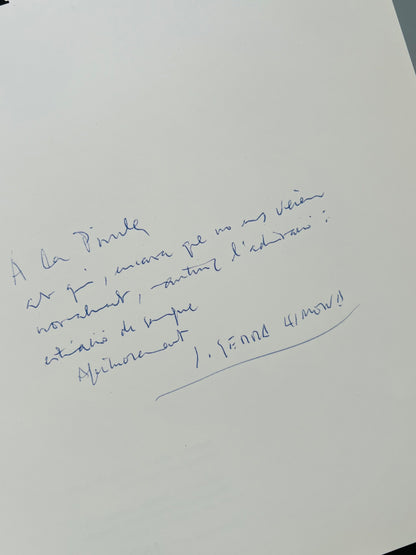 A la
amb qui, encara que no ens veiem
normalment, mantinc l'admiració i
estimació de sempre
Afectuosament
J. SERRA